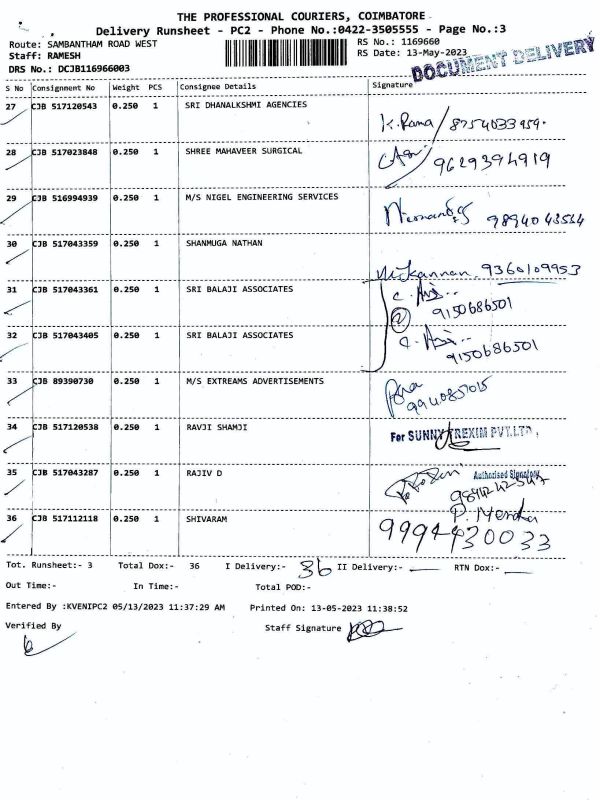 THE PROFESSIONAL COURIERS, COIMBATORE
Delivery Runsheet - PC2 - Phone No.:0422-3505555 - Page No.:3
Route: SAMBANTHAM ROAD WEST
RS No.: 1169660
Staff: RAMESH
RS Date: 13-May-2023
DOCUMENT DELIVERY
DRS No.: DCJB116966003
S No Consignment No Weight PCS Consignee Details Signature
27 CJB 517120543 0.250 1 SRI DHANALKSHMI AGENCIES
K. Rama / 8754033959.
28 CJB 517023848 0.250 1 SHREE MAHAVEER SURGICAL
9629394919
29 CJB 516994939 0.250 1 M/S NIGEL ENGINEERING SERVICES
9894043564
30 CJB 517043359 0.250 1 SHANMUGA NATHAN
9360109953
31 CJB 517043361 0.250 1 SRI BALAJI ASSOCIATES
9150686501
2
32 CJB 517043405 0.250 1 SRI BALAJI ASSOCIATES
9150686501
33 CJB 89390730 0.250 1 M/S EXTREAMS ADVERTISEMENTS
34 CJB 517120538 0.250 1 RAVJI SHAMJI
For SUNNY TREXIM PVT.LTD.,
35 CJB 517043287 0.250 1 RAJIV D
Authorised Signatory
36 CJB 517112118 0.250 1 SHIVARAM
9994430033
Tot. Runsheet:- 3 Total Dox:- 36 I Delivery:- 36 II Delivery:- RTN Dox:-
Out Time:- In Time:- Total POD:-
Entered By :KVENIPC2 05/13/2023 11:37:29 AM Printed On: 13-05-2023 11:38:52
Verified By Staff Signature